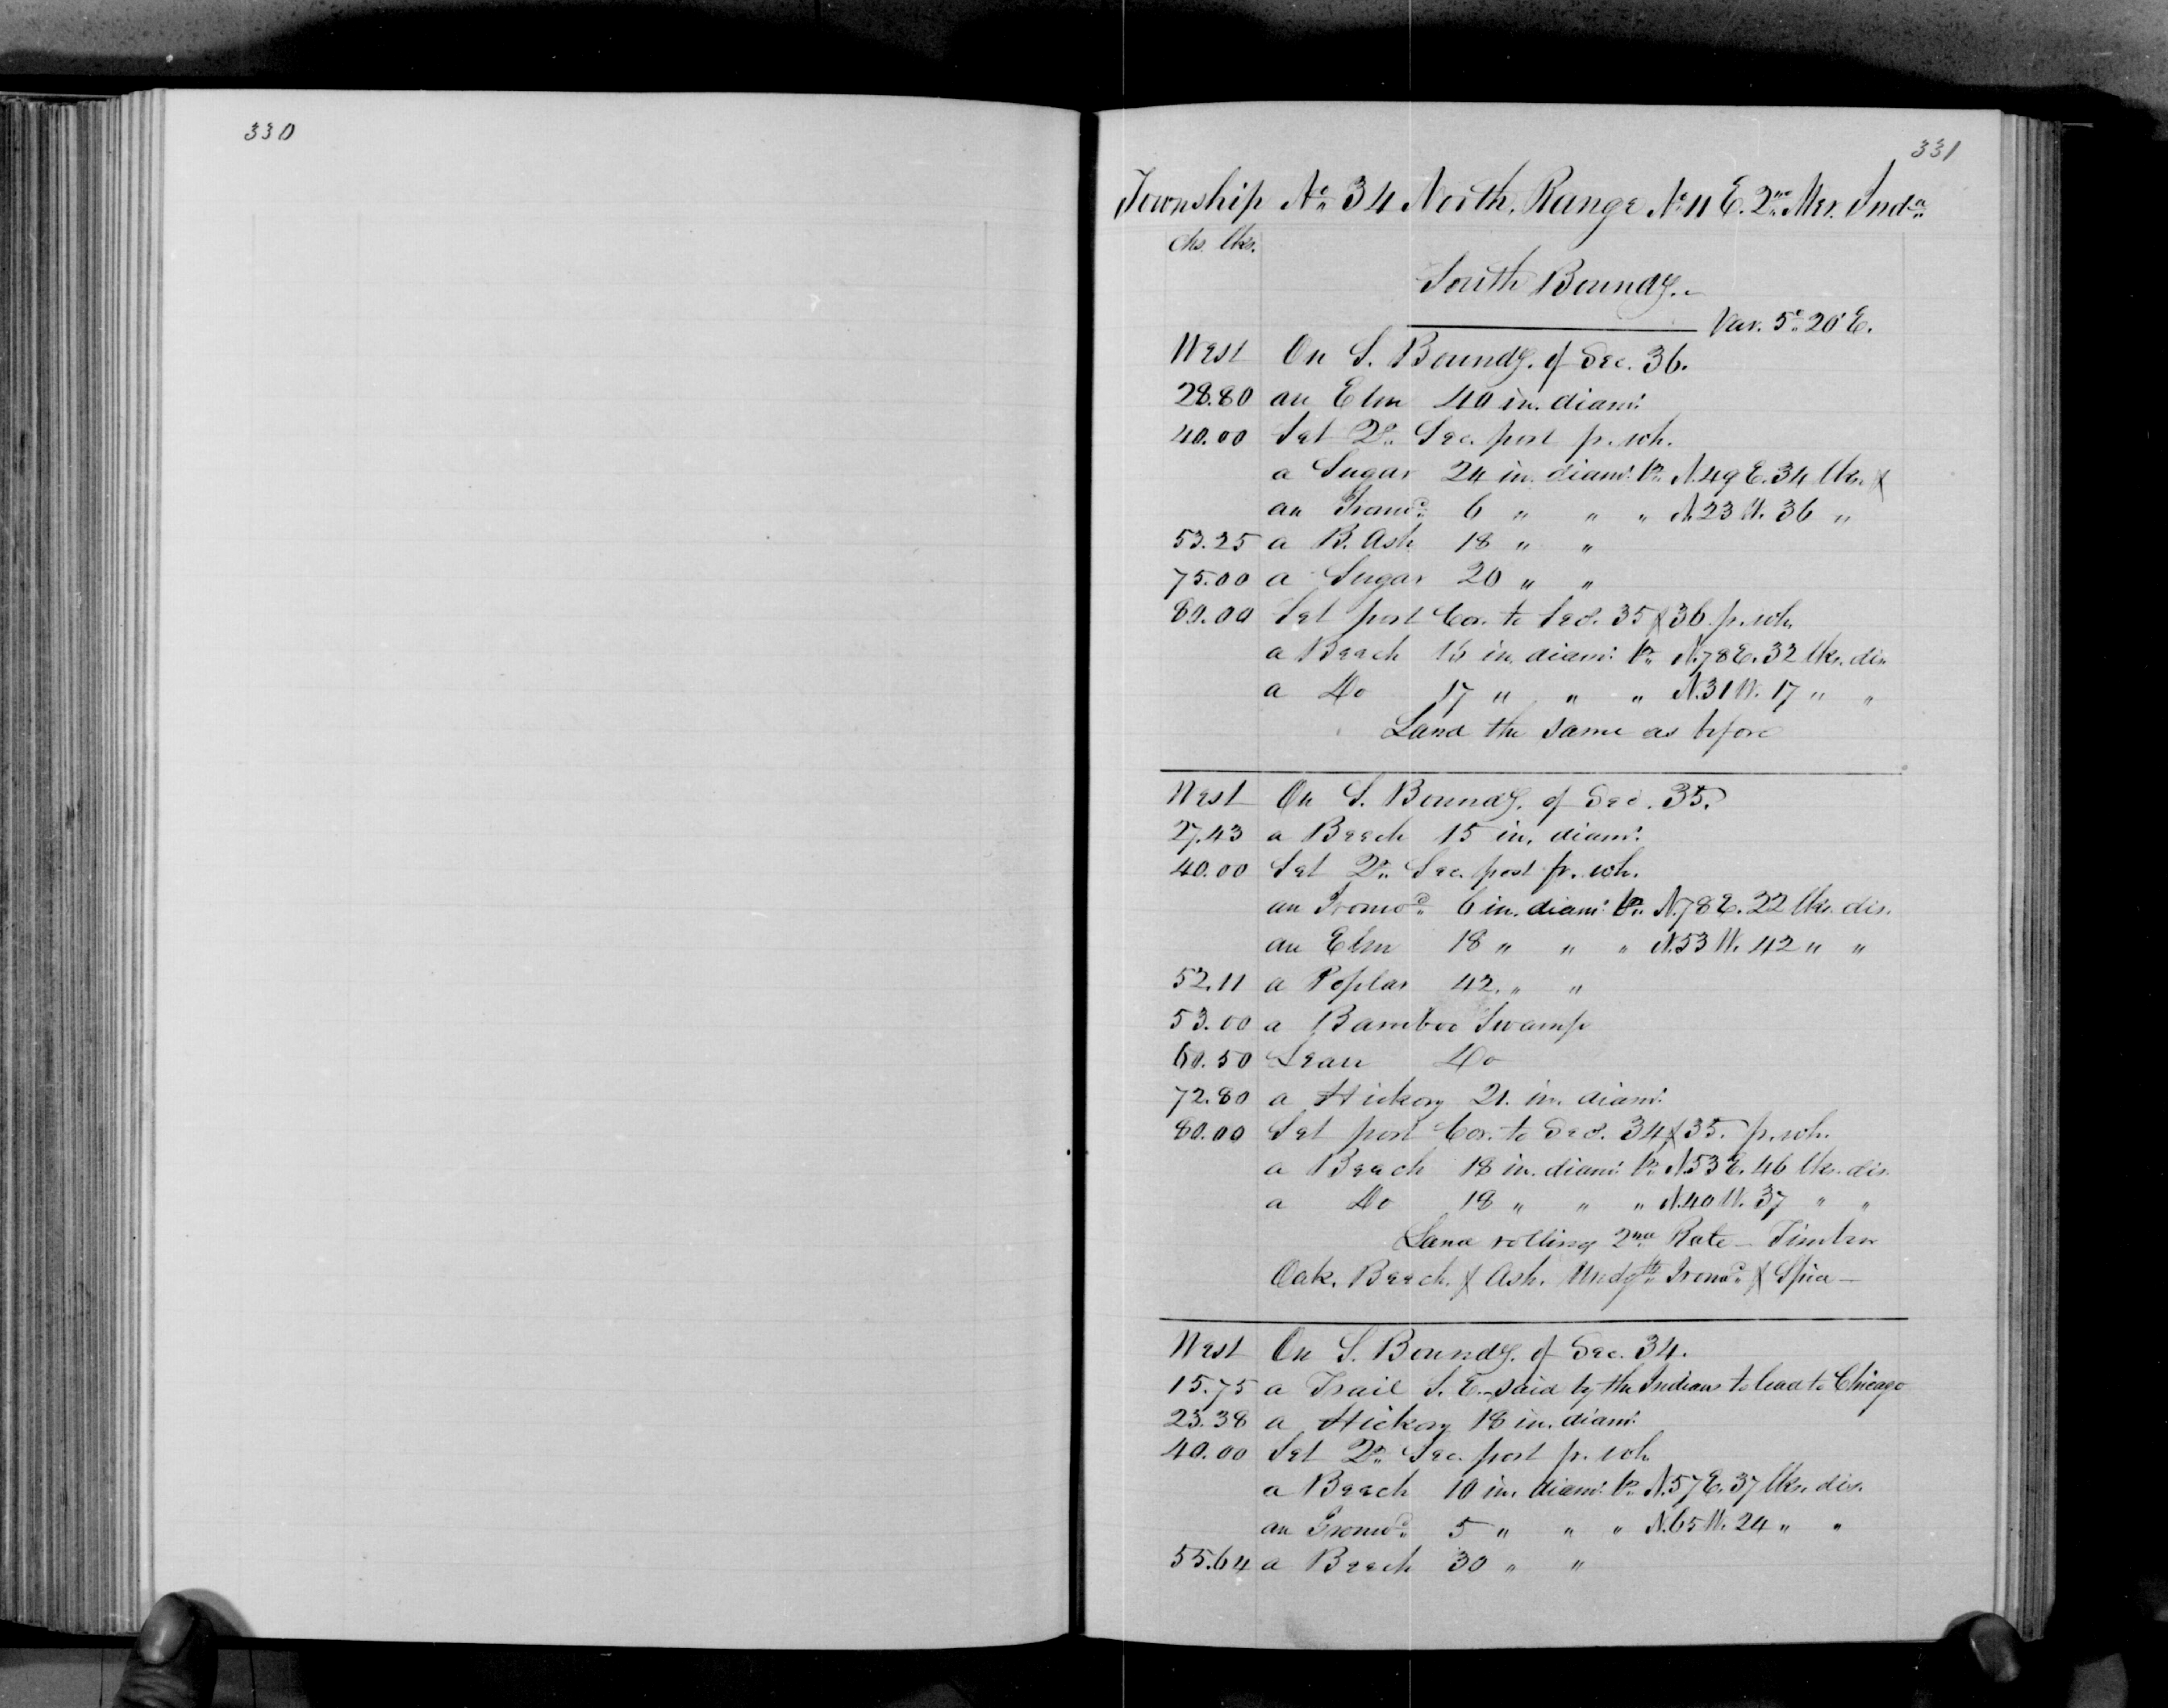 330
331
Township No. 34 North, Range No. 11 E. 2nd Mer. Inda.
chs. lks.
South Boundy.
Var. 5° 20' E.
West On S. Boundy. of Sec. 36.
28.80 an Elm 40 in. diamr.
40.00 Set Qr. Sec. post fr. wh.
a Sugar 24 in. diamr. br. N. 49 E. 34 lks. &
an Ironwd. 6 " " " N. 23 W. 36 "
53.25 a B. Ash 18 " "
75.00 a Sugar 20 " "
80.00 Set post Cor. to Secs. 35 & 36 fr. wh.
a Beech 16 in. diamr. br. N. 78 E. 32 lks. dis.
a Do 17 " " " N. 31 W. 17 " "
Land the same as before
West On S. Boundy. of Sec. 35.
27.43 a Beech 15 in. diamr.
40.00 Set Qr. Sec. post fr. wh.
an Ironwd. 6 in. diamr. br. N. 78 E. 22 lks. dis.
an Elm 18 " " " N. 53 W. 42 " "
52.11 a Poplar 42 " "
53.00 a Bamboo Swamp
60.50 Leave Do
72.80 a Hickory 21 in. diamr.
80.00 Set post Cor. to Secs. 34 & 35. fr. wh.
a Beech 18 in. diamr. br. N. 53 E. 46 lks. dis.
a Do 18 " " " N. 40 W. 37 " "
Land rolling 2nd Rate - Timber
Oak, Beech, & Ash. Undgth. Ironwd. & Spice -
West On S. Boundy. of Sec. 34.
15.75 a Trail S. E. - said by the Indians to lead to Chicago
23.38 a Hickory 18 in. diamr.
40.00 Set Qr. Sec. post fr. wh.
a Beech 10 in. diamr. br. N. 57 E. 37 lks. dis.
an Ironwd. 5 " " " N. 65 W. 24 " "
55.64 a Beech 30 " "